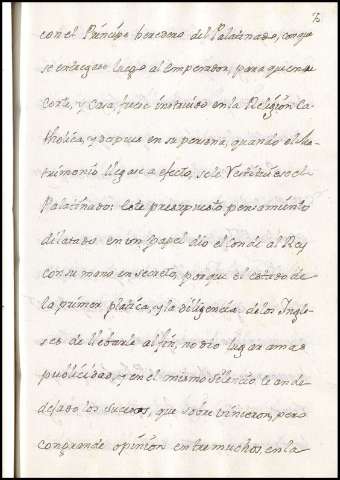 con el Principe heredero del Palatinado, con que
se entregase luego al emperador, para que en su
corte, y Casa, fuese instruido en la Religión Ca-
tholica, y despues en su persona, quando el Ma-
trimonio llegase a efecto, se le Restituyese el
Palatinado: este presupuesto pensamiento
dilatado en un papel dio el Conde al Rey
con su mano en secreto, porque el estado de
la primer platica, y la diligencia de los Ingle-
ses de llebarle al fin, no dio lugar a mas
publicidad, y en el mismo silencio le an de-
dejado los sucesos, que sobre vinieron, pero
con grande opinión entre muchos, en la